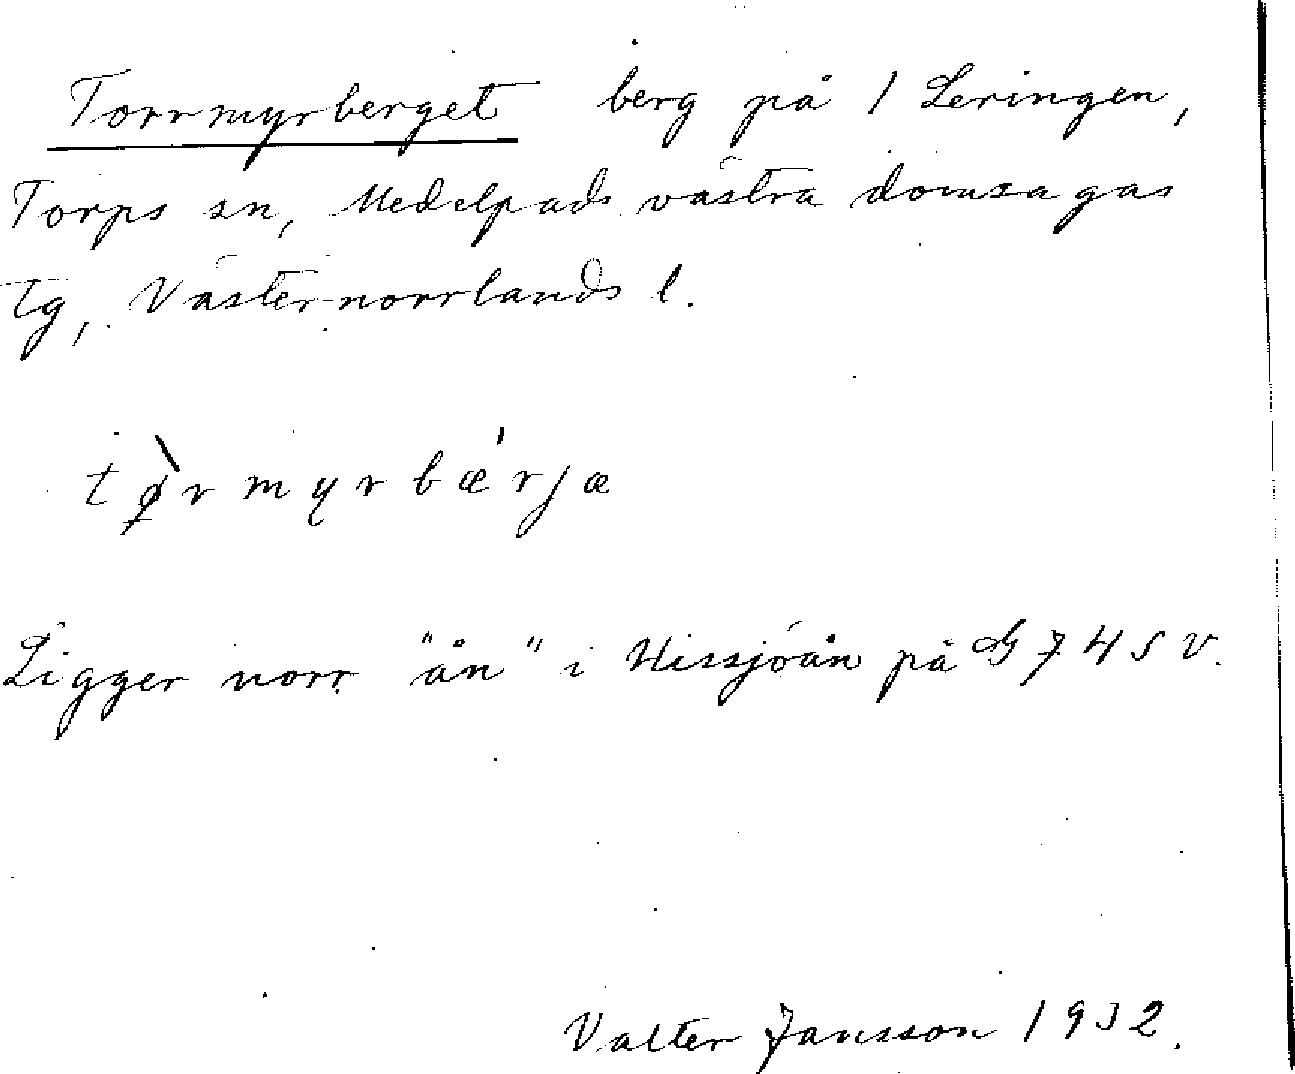 Torrmyrberget berg på 1 Leringen,
Torps sn, Medelpads västra domsagas
tg, Västernorrlands l.
tø̀rmyrbæ'rjæ
Ligger norr "ån" i Hissjöån på G 74 S V.
Valter Jansson 1932.